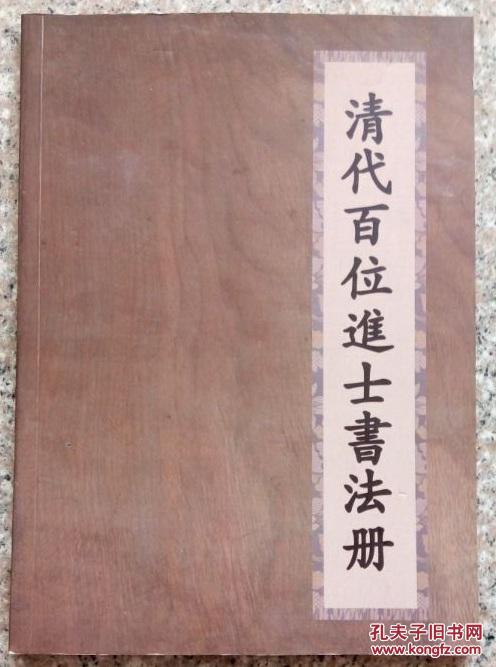 清代百位進士書法册
孔夫子旧书网
www.kongfz.com